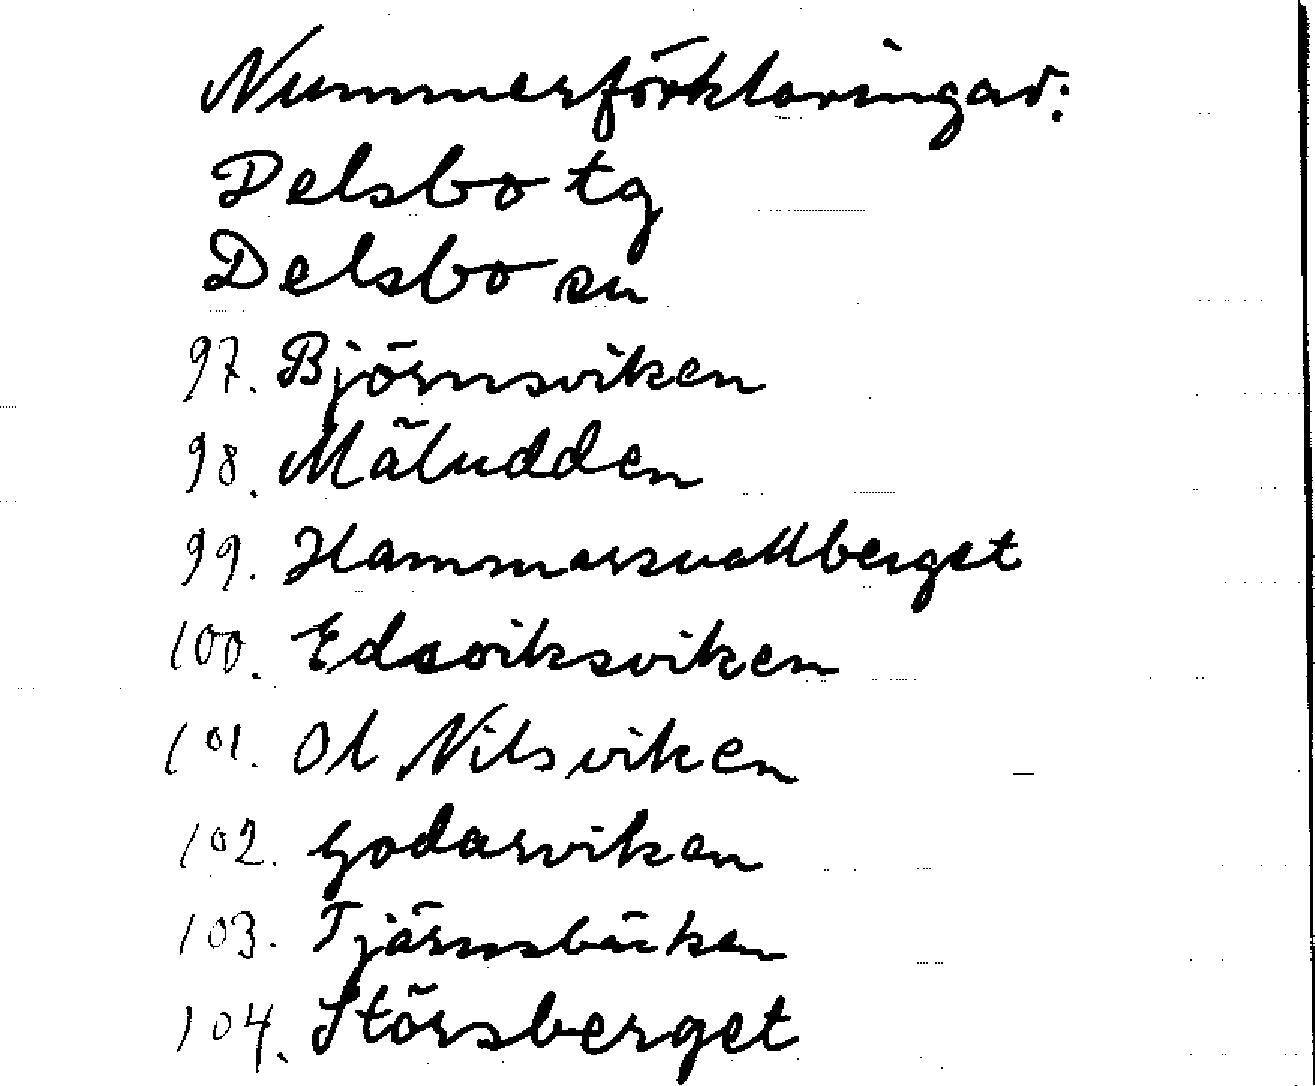 Nummerförklaringar:
Delsbo tg
Delsbo sn
97. Björnsviken
98. Mäludden
99. Hammarsvallberget
100. Edsviksviken
101. Ol Nilsviken
102. Godarviken
103. Tjärnsbäcken
104. Störsberget